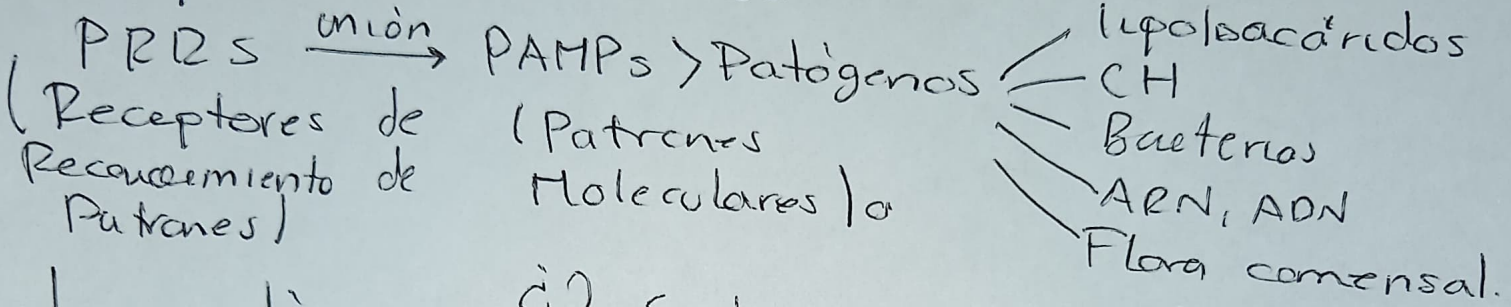 PRRS unión → PAMPs > Patógenos
(Receptores de
Reconocimiento de
Patrones)
(Patrones
Moleculares) a
lipolisacáridos
CH
Bacterias
ARN, ADN
Flora comensal.